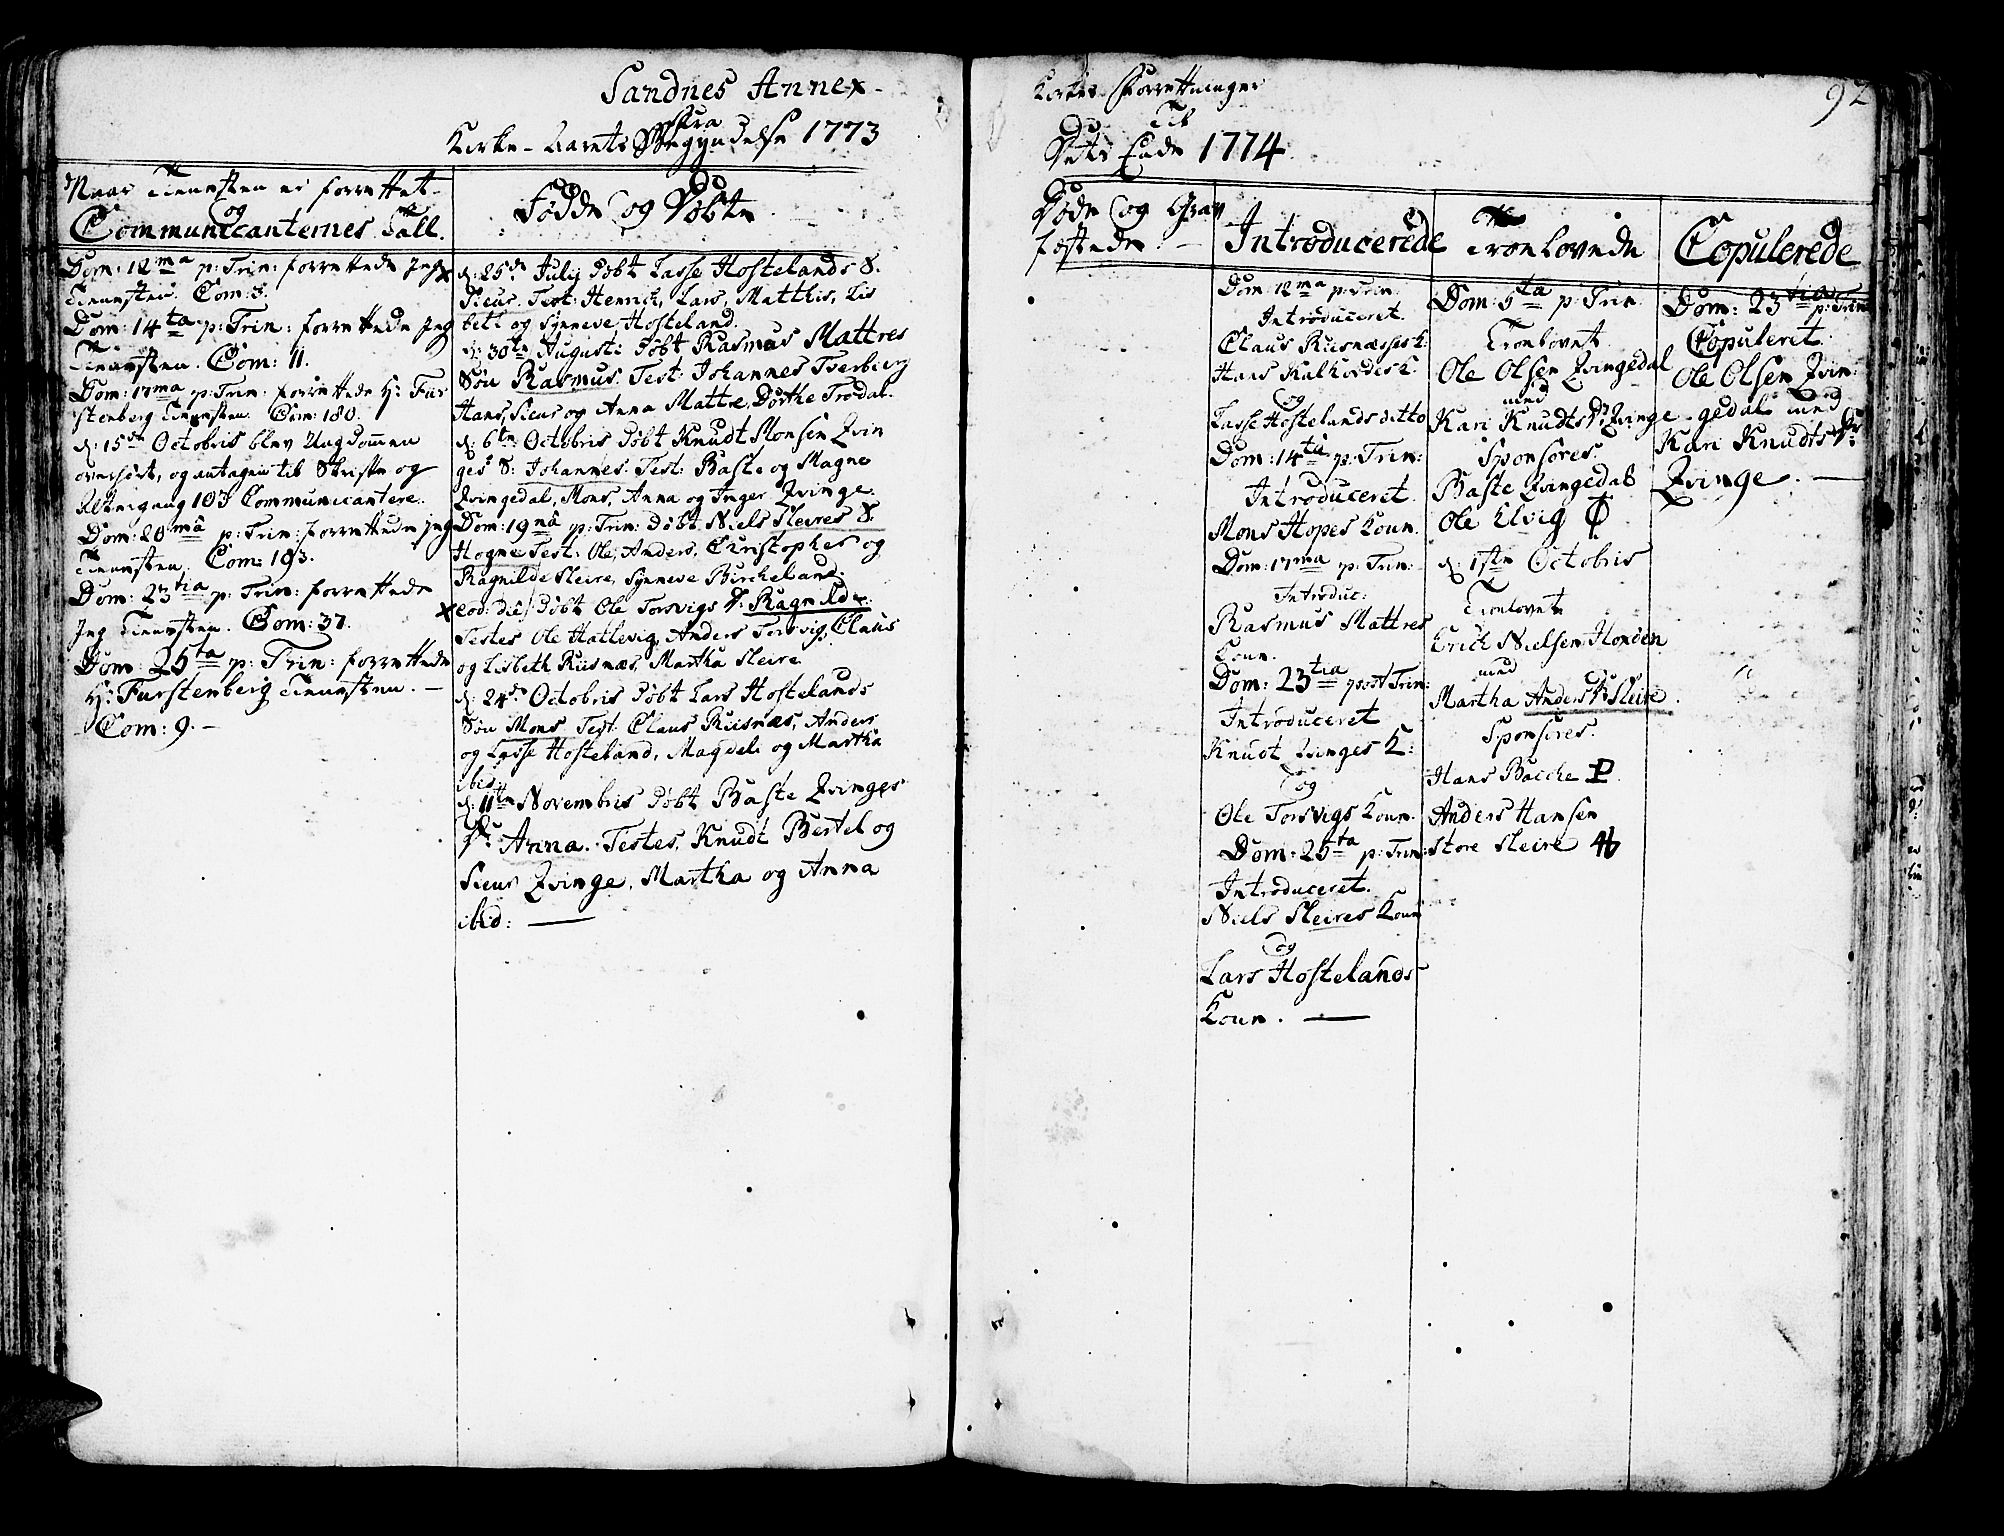 Sandnes Annex-
Kirke-Forrettninger
92
Fra
Kirke-Aarets Begyndelse 1773
Til
Dets Ende 1774.
Naar Tienesten er forrettet
og
Communicanternes Tall.
Dom: 12ma p: Trin: forrettede Jeg
Tienesten. Com: 5.
Dom: 14ta p: Trin: forrettede Jeg
Tienesten. Com: 11.
Dom: 17ma p: Trin: forrettede Hr. Fur
stenberg Tienesten. Com: 180.
d: 15de Octobris blev Ungdommen
overhört, og antagen til Skrifte og
Altergang 103 Communicantere.
Dom: 20ma p: Trin: forrettede jeg
Tienesten. Com: 193.
Dom: 23tia p: Trin: forrettede
Jeg Tienesten. Com: 37.
Dom: 25ta p: Trin: forrettede
Hr: Furstenberg Tienesten. —
Com: 9. —
Födde og Döbte
d: 25de Julij Döbt Lasse Hostelands S.
Sieur. Test: Henrich, Lars, Matthis, Lis
beth og Synneve Hosteland.
d: 30te Augusti Döbt Rasmus Mattres
Sön Rasmus. Test: Johannes Tverberg
Hans, Sieur og Anna Mattre, Dorthe Trodal.
d: 6te Octobris Döbt Knudt Monsen Qvin
ges S: Johannes. Test: Baste og Magne
Qvingedal, Mons, Anna og Inger Qvinge.
Dom: 19na p: Trin: döbt Niels Sleires S.
Hogne Test: Ole, Anders, Christopher og
Ragnilde Sleire, Synneve Bircheland.
eod: die Döbt Ole Torsvigs D: Ragnilde.
Testes Ole Hatlevig, Anders Torsvig, Claus
og Lisbeth Risnæs, Martha Sleire
d: 24de Octobris Döbt Lars Hostelands
Sön Mons Test. Claus Riisnæs, Anders
og Lasse Hosteland, Magdeli og Martha
ibid.
d: 11te Novembris Döbt Baste Qvinges
Dr: Anna. Testes, Knudt Bertel og
Sieur Qvinge, Martha og Anna
ibid: —
Döde og Grav
fæstede: —
Introducerede
Dom: 12ma p: Trin:
Introduceret.
Claus Risnæsses K:
Hans Kalkordes K.
og
Lasse Hostelands ditto
Dom: 14ta p: Trin:
Introduceret.
Mons Hopes Koun.
Dom: 17ma p: Trin:
Introduc:
Rasmus Mattres
Koun.
Dom: 23tia post Trin:
Introduceret
Knudt Qvinges K:
og
Ole Torsvigs Koun.
Dom: 25ta p: Trin:
Introduceret.
Niels Sleires Koun
og
Lars Hostelands
Koun. —
Troelovede
Dom: 5ta p: Trin
Troelovet
Ole Olsen Qvingedal
med
Kari Knudts Dr Qvinge
Sponsores.
Baste Qvingedal
Ole Elvig
d: 1ste Octobris
Troelovet
Erich Nielsen Honden
med
Martha Anders Dr Sleire.
Sponsores.
Hans Bacche
Anders Hansen
Store Sleire
Copulerede
Dom: 23tia p: Trin
Copuleret.
Ole Olsen Qvin-
gedal med
Kari Knudts Dr:
Qvinge. —